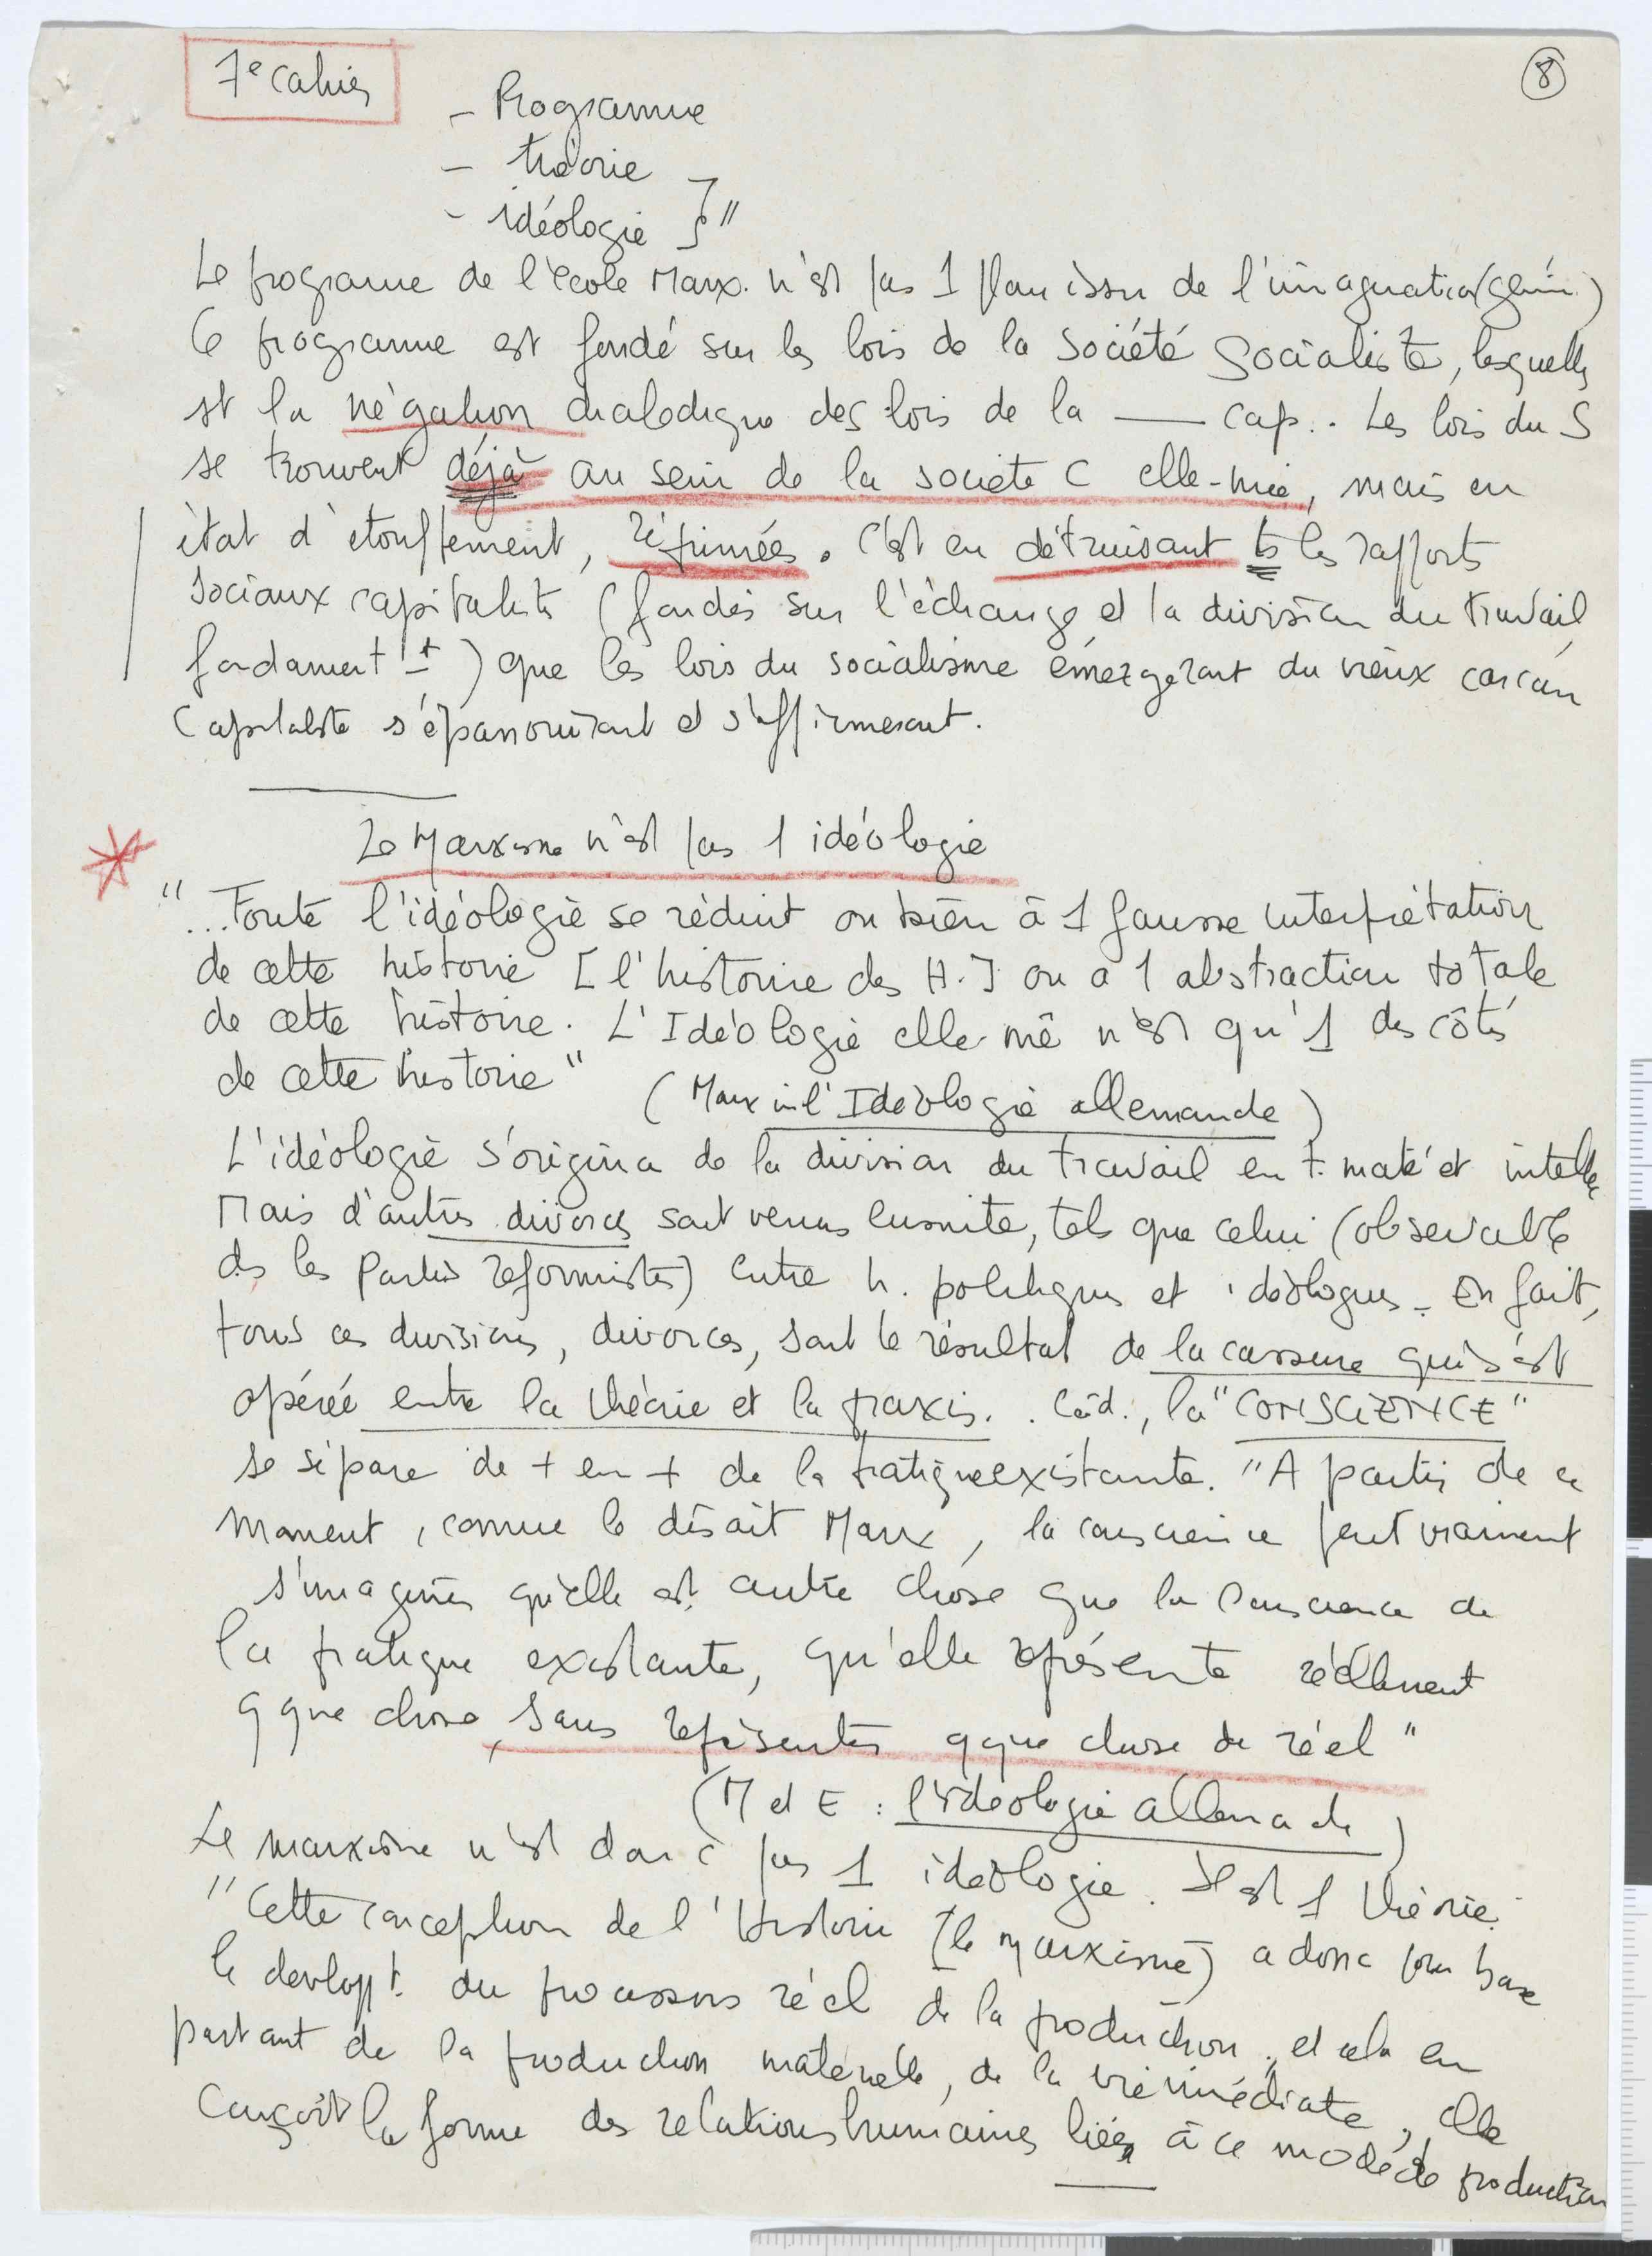 7e cahier
8
- Programme
- théorie
- idéologie } "
Le programe de l'école Marx. n'est pas 1 plan issu de l'imagination (géni.)
Ce programme est fondé sur les lois de la société Socialiste, lesquelles
st la négation dialectique des lois de la —— cap.. Les lois du S
se trouvent déjà au sein de la société C elle-mê, mais en
état d'étouffement, réprimées. C'est en détruisant ts les rapports
sociaux capitalists (fondés sur l'échange et la division du travail
fondament!t) que les lois du socialisme émergerant du vieux carcan
Capitaliste s'épanouirant et s'affirmerant.
Le Marxisme n'est pas 1 idéologie
"...Toute l'idéologie se réduit ou bien à 1 fausse interprétation
de cette histoire [l'histoire des H.] ou à 1 abstraction totale
de cette histoire. L'Idéologie elle-mê n'est qu'1 des côtés
de cette histoire"
(Marx in l'Idéologie allemande)
L'idéologie s'origina de la division du travail en t. maté et intelle
Mais d'autres divorces sont venus ensuite, tels que celui (observable
ds les Partis réformistes) entre h. politiques et idéologues. En fait,
tous ces divisions, divorces, sont le résultat de la cassure qui s'est
opérée entre la théorie et la praxis.. Càd., la "CONSCIENCE"
se sépare de + en + de la pratique existante. "A partir de ce
moment, comme le disait Marx, la conscience peut vraiment
s'imaginer qu'elle est autre chose que la conscience de
la pratique existante, qu'elle représente réellement
qque chose, sans représenter qque chose de réel"
(M et E : l'idéologie allemade)
Le marxisme n'est donc pas 1 idéologie. Il est 1 théorie.
"Cette conception de l'Histoire [le marxisme] a donc pour base
le devlopt. du processus réel de la production, et cela en
partant de la production matérielle, de la vie imédiate, elle
conçoit la forme des relations humaines liées à ce mode de production